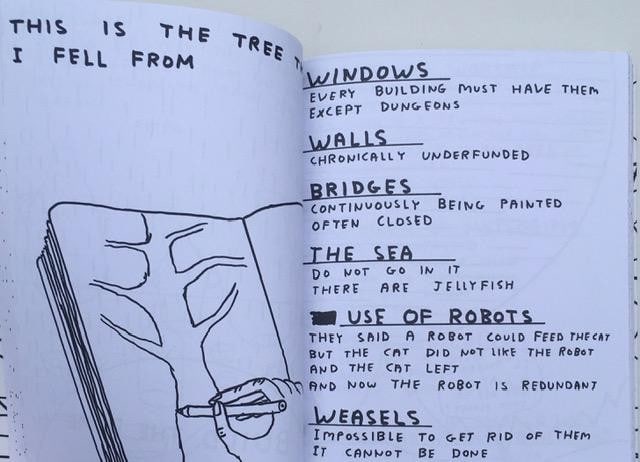 THIS IS THE TREE
I FELL FROM
WINDOWS
EVERY BUILDING MUST HAVE THEM
EXCEPT DUNGEONS
WALLS
CHRONICALLY UNDERFUNDED
BRIDGES
CONTINUOUSLY BEING PAINTED
OFTEN CLOSED
THE SEA
DO NOT GO IN IT
THERE ARE JELLYFISH
USE OF ROBOTS
THEY SAID A ROBOT COULD FEED THE CAT
BUT THE CAT DID NOT LIKE THE ROBOT
AND THE CAT LEFT
AND NOW THE ROBOT IS REDUNDANT
WEASELS
IMPOSSIBLE TO GET RID OF THEM
IT CANNOT BE DONE